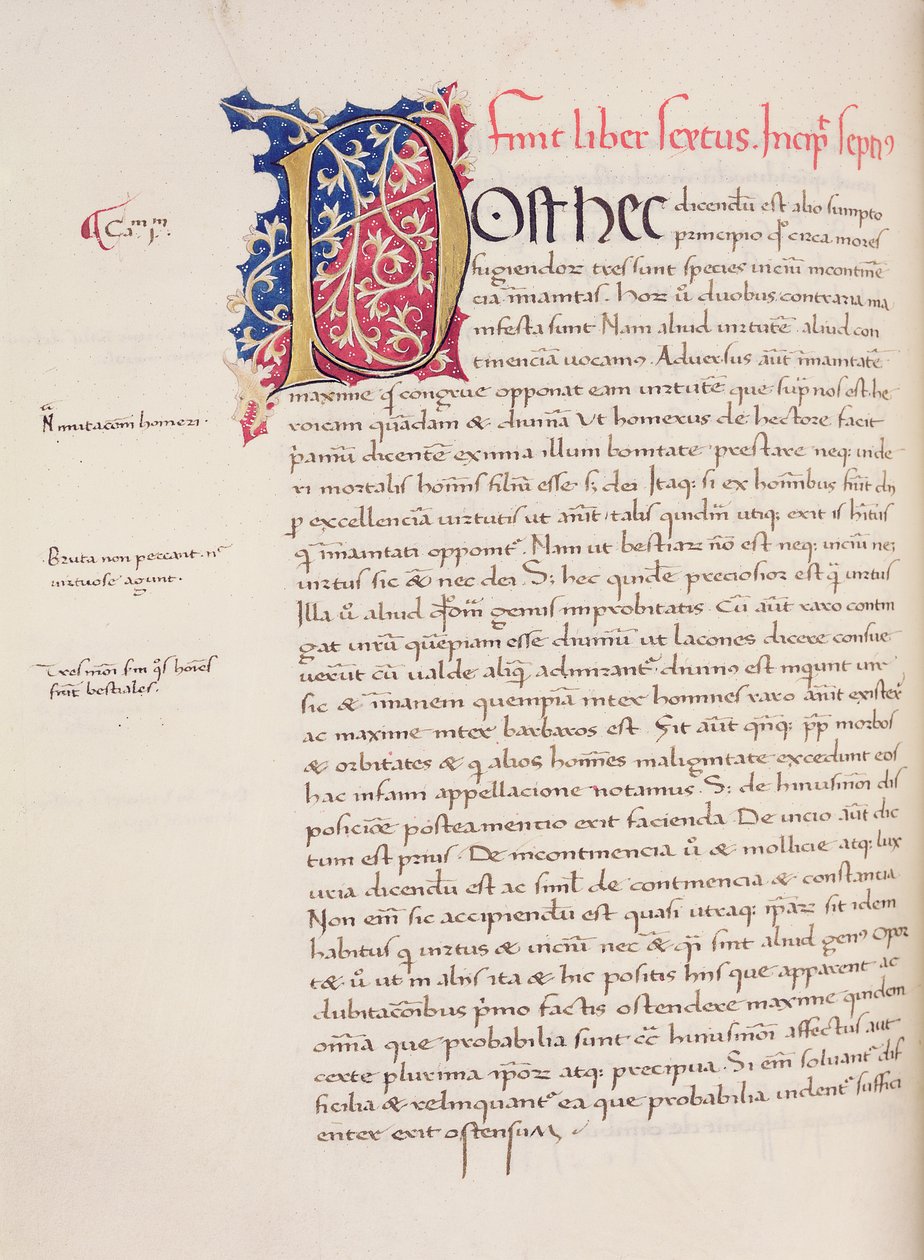 Finit liber sextus. Incip̄t septiꝰ
Post hec dicendū est alio sumpto
principio qͦ circa mores
fugiendoꝝ tres sunt species uiciū incontinē
cia īmanitas. Hoꝝ u̾o duobus contraria ma
nifesta sunt Nam aliud uirtutē aliud con
tinenciā uocamꝰ. Aduersus aūt īmanitatē
maxime congrue opponat eam uirtutē que sup̄ nos est he
roicam quādam & diuinā Ut homerus de hectore facit
p̄amū dicentē eximia illum bonitate prestare neq; uide
ri mortalis hoīnis filiū esse s; dei Itaq; si ex hoīnibus fiūt dij
ꝑ excellenciā uirtutis ut aiūt talis quidm̄ utiq; erit is hītus
q īmanitati opponitᷣ. Nam ut bestiaꝝ nō est neq; uiciū ne;
uirtus sic & nec dei. S; hec quidē preciosior est q̄ uirtus
Illa u̾o aliud genus improbitatis. Cū aūt raro contin
gat uirū quēpiam esse diuinū ut lacones dicere consue
uerūt cū ualde aliq̄ admirantᷣ diuinꝰ est inquiunt uir
sic & īmanem quempiā inter homines raro aiūt existeꝝ
ac maxime inter barbaros est. Fit aūt q̄nq; pp̄ morbos
& orbitates & q alios hoīnes malignitate excedunt eos
hac infami appellacione notamus. S; de hiusmōi dis
posiciōe postea mentio erit facienda. De uicio aūt dic
tum est prius. De incontinencia u̾o & mollicie atq; lux
uria dicendū est ac simłˀ de continencia & constantia
Non em̄ sic accipiendū est quasi utraq; ip̄aꝝ sit idem
habitus q uirtus & uiciū nec & q̄ sint aliud genꝰ Opor
t& u̾o ut in alijs ita & hic positis hijs que apparent ac
dubitacōibus p̄mo factis ostendere maxime quidem
oīna que probabilia sunt cc̄ hiusmōi affectus aut
certe plurima ip̄oꝝ atq; precipua. Si em̄ soluantᷣ dif
ficilia & relinquantᷣ ea que probabilia uidentᷣ suffici
enter erit ostensum
Caᵐ 1ᵐ.
Nᵃ mutacōm homeri.
Bruta non peccant. nᶜ
uirtuose agunt.
Tres mōi sm̄ q̊s hoīes
fiūt bestiales.